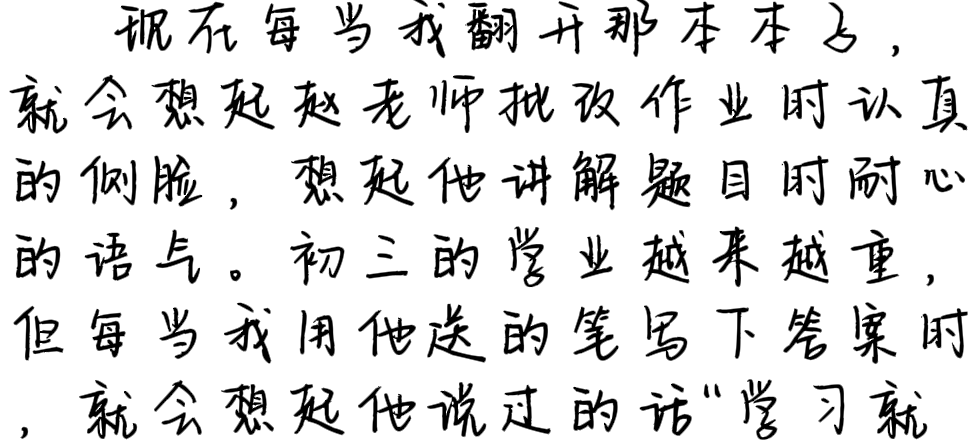 现在每当我翻开那本本子，
就会想起赵老师批改作业时认真
的侧脸，想起他讲解题目时耐心
的语气。初三的学业越来越重，
但每当我用他送的笔写下答案时
，就会想起他说过的话“学习就